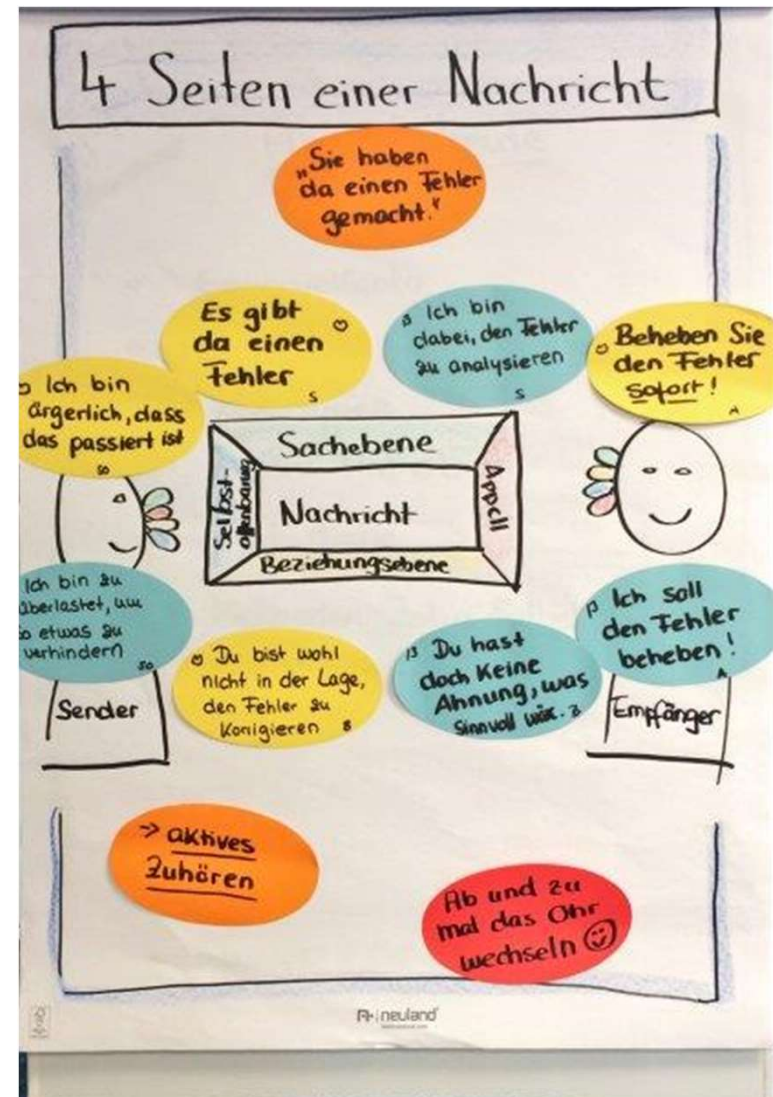 4 Seiten einer Nachricht
„Sie haben
da einen Fehler
gemacht."
Es gibt
da einen
Fehler
S
Ich bin
dabei, den Fehler
zu analysieren
S
Beheben Sie
den Fehler
sofort!
A
Ich bin
ärgerlich, dass
das passiert ist
SO
Sachebene
Selbst-
offenbarung
Nachricht
Appell
Beziehungsebene
Ich bin zu
überlastet, um
so etwas zu
verhindern
SO
Sender
Du bist wohl
nicht in der Lage,
den Fehler zu
Korrigieren B
Du hast
doch Keine
Ahnung, was
sinnvoll wär. B
Ich soll
den Fehler
beheben!
A
Empfänger
-> aktives
Zuhören
Ab und zu
mal das Ohr
wechseln
neuland